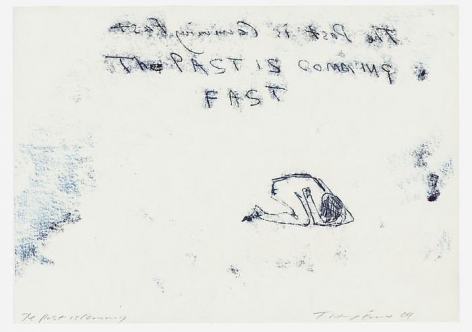 The Past is Comming Fast
THE PAST IS COMAING
FAST
The Past is Coming
09